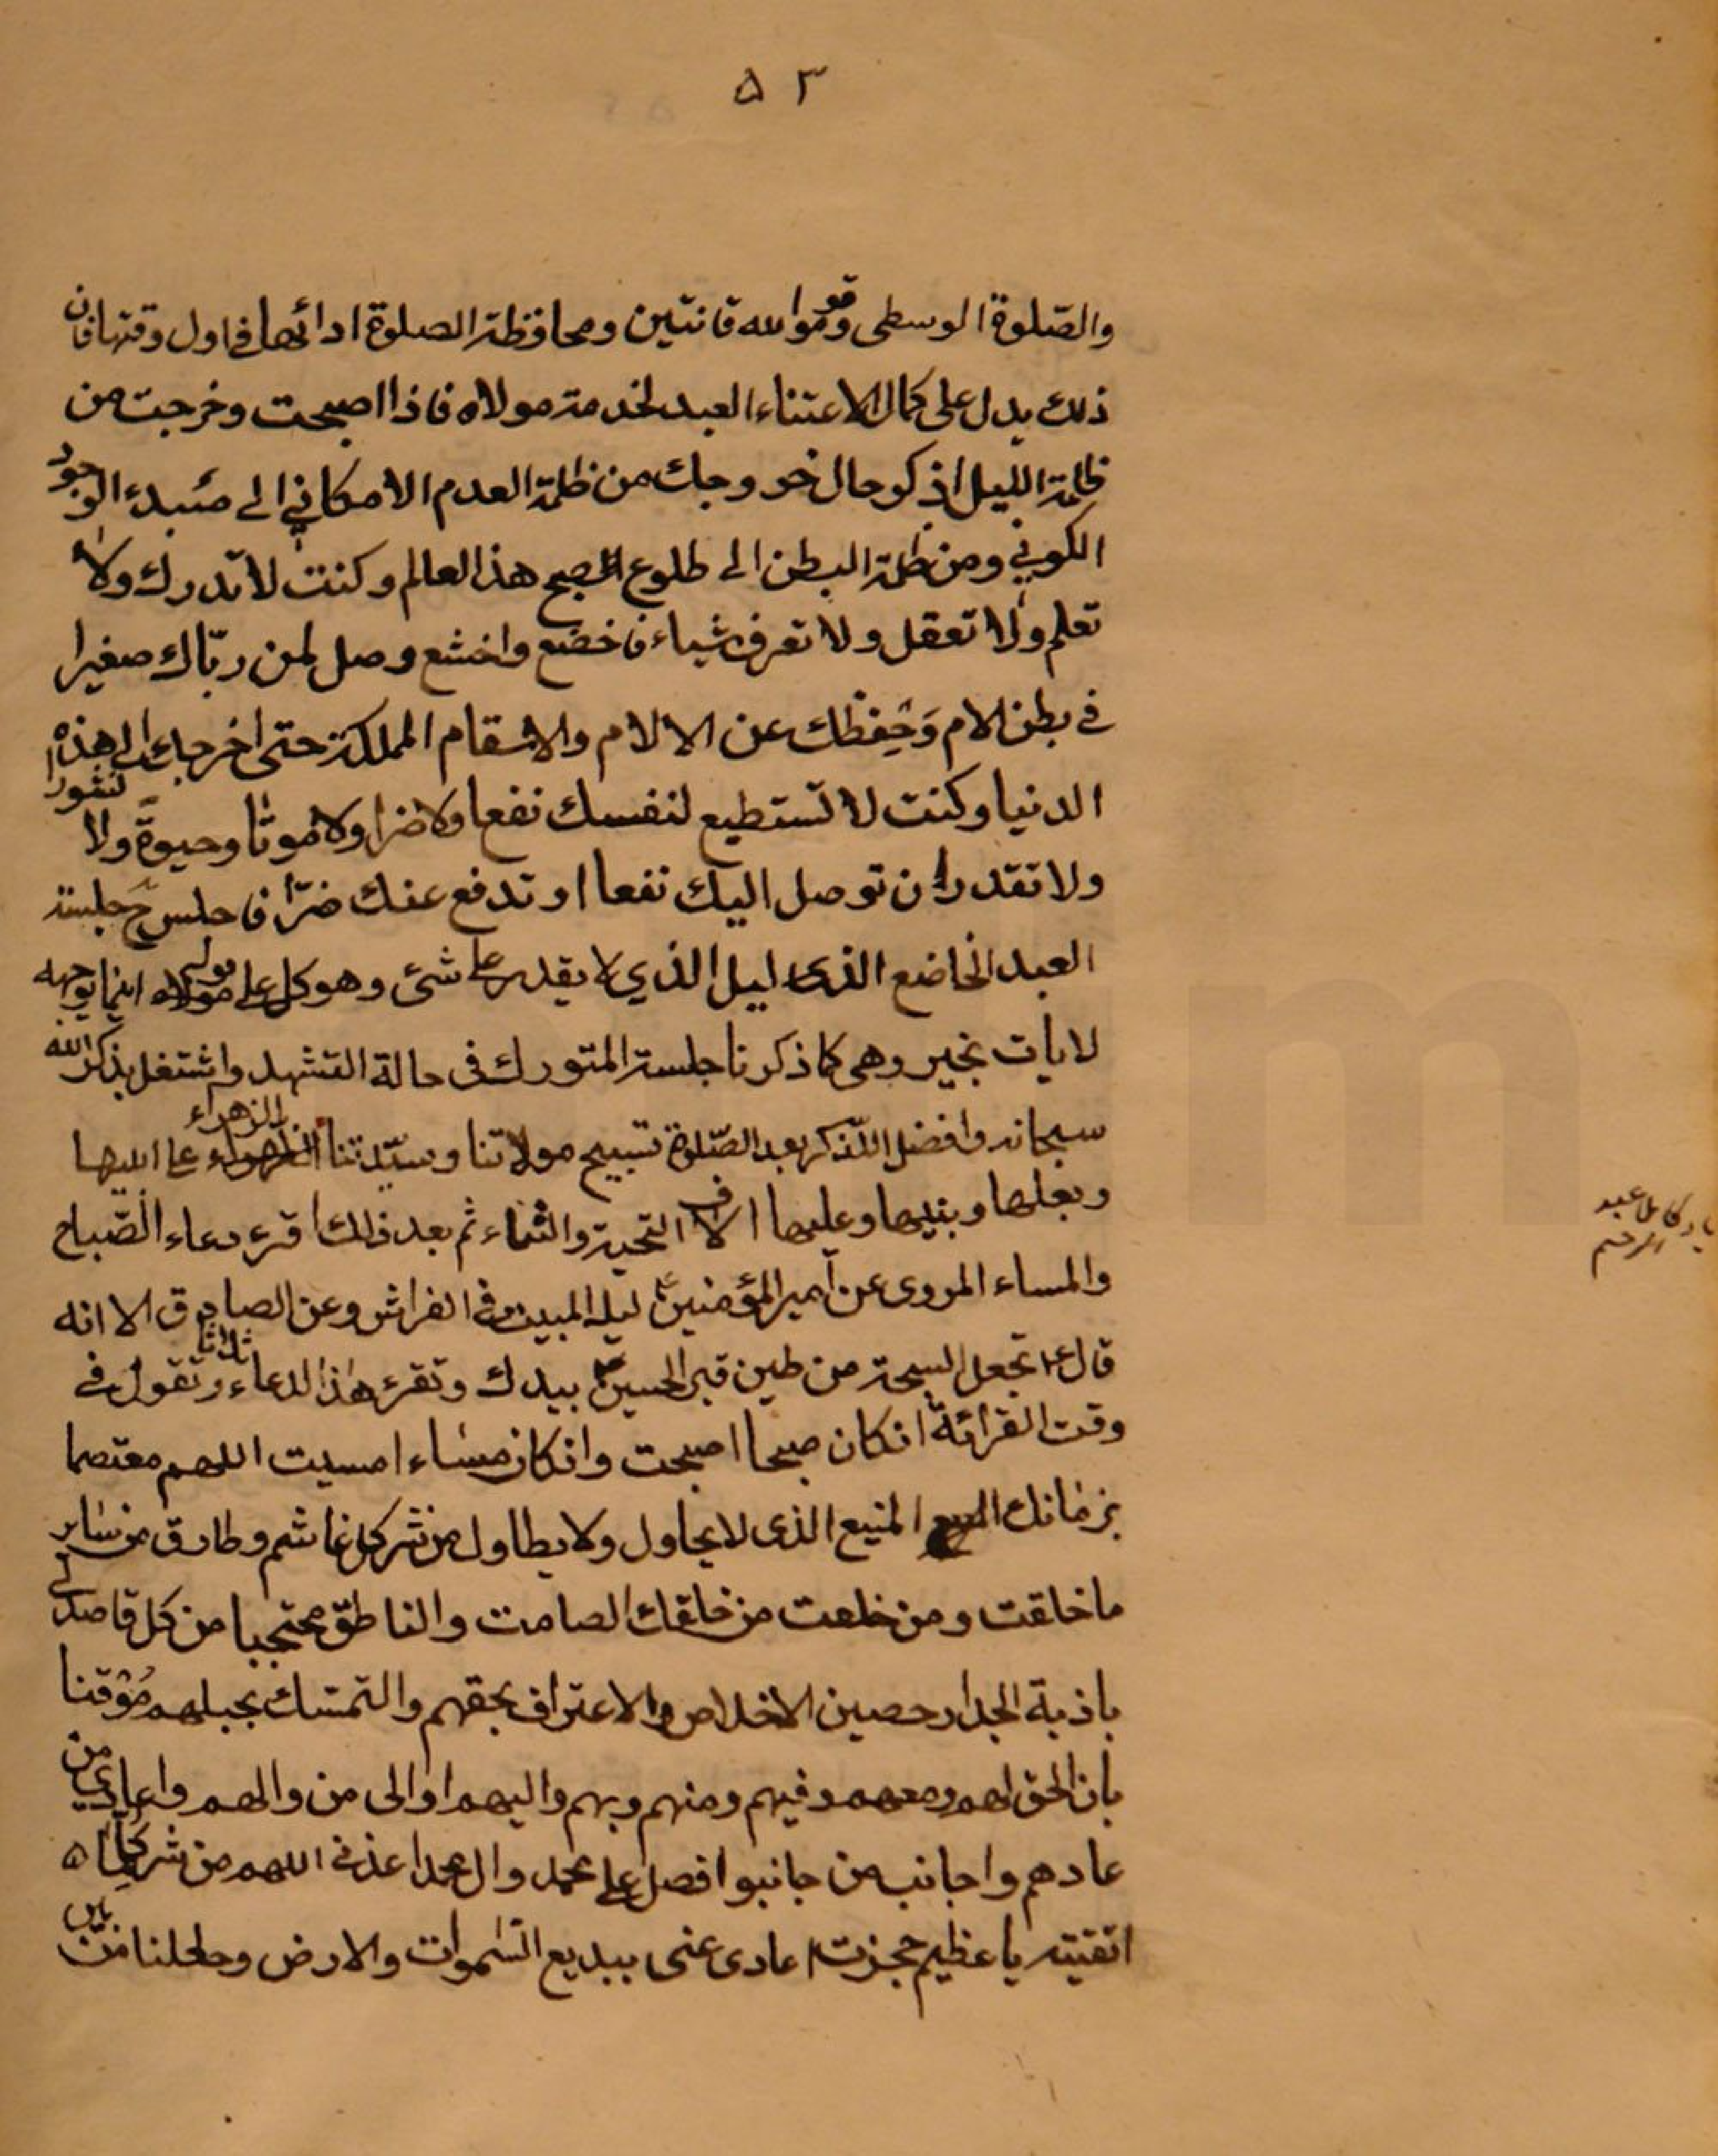 ٥٣
والصّلوة الوسطى وقوموا لله قانتين ومحافظة الصلوة ادائها في اول وقتها فان
ذلك يدل على كمال الاعتناء العبد لخدمة مولاه فاذا اصبحت وخرجت من
ظلمة الليل اذكر حال خروجك من ظلمة العدم الامكاني الى مبدء الوجود
الكوني ومن ظلمة البطن الى طلوع الصبح هذا العالم وكنت لا تدرك ولا
تعلم ولا تعقل ولا تعرف شياء فاخضع واخشع وصل لمن ربّاك صغيرا
في بطن الام وَحَفِظك عن الالام والاسقام المملكة حتى اخرجك الى هذه
الدنيا وكنت لا تستطيع لنفسك نفعا ولا ضرا ولا موتا وحيوة ولا نشورا
ولا تقدر ان توصل اليك نفعا او تدفع عنك ضرّا فاجلس ح جلسة
العبد الخاضع الذليل الذي لا يقدر على شئ وهو كل على موليه اينما يوجهه
لايأت بخير وهي كما ذكرنا جلسة المتورك في حالة التشهد واشتغل بذكر الله
سبحانه وافضل الذكر بعد الصّلوة تسبيح مولاتنا وسيّدتنا الزهراء على ابيها
وبعلها وبنيها وعليها الاف التحية والثناء ثم بعد ذلك اقرء دعاء الصّباح
والمساء المروى عن أمير المؤمنين ع ليلة المبيت في الفراش وعن الصادق الا انه
قال ع تجعل السبحة من طين قبر الحسين ع بيدك وتقرء هذا الدعاء ثلاثا وتقول في
وقت القرائة انكان صبحا اصبحت وانكان مساء امسيت اللهم معتصما
بزمامك المنيع الذى لا يحاول ولا يطاول من شر كل غاشم وطارق من ساير
ما خلقت ومن خلقت من خلقك الصامت والناطق محتجبا من كل قاصد لى
باذية الجدار حصين الاخلاص والاعتراف بحقهم والتمسّك بحبلهم مُؤقنا
بان الحق لهم ومعهم وفيهم ومنهم وبهم واليهم اوالى من والهم واعادى من
عادهم واجانب من جانبوا فصل على محمد وال محمد اعذنى اللهم من شر كلما
اتقيته يا عظيم حجزت اعادى عنى ببديع السّموات والارض وجعلنا من بين